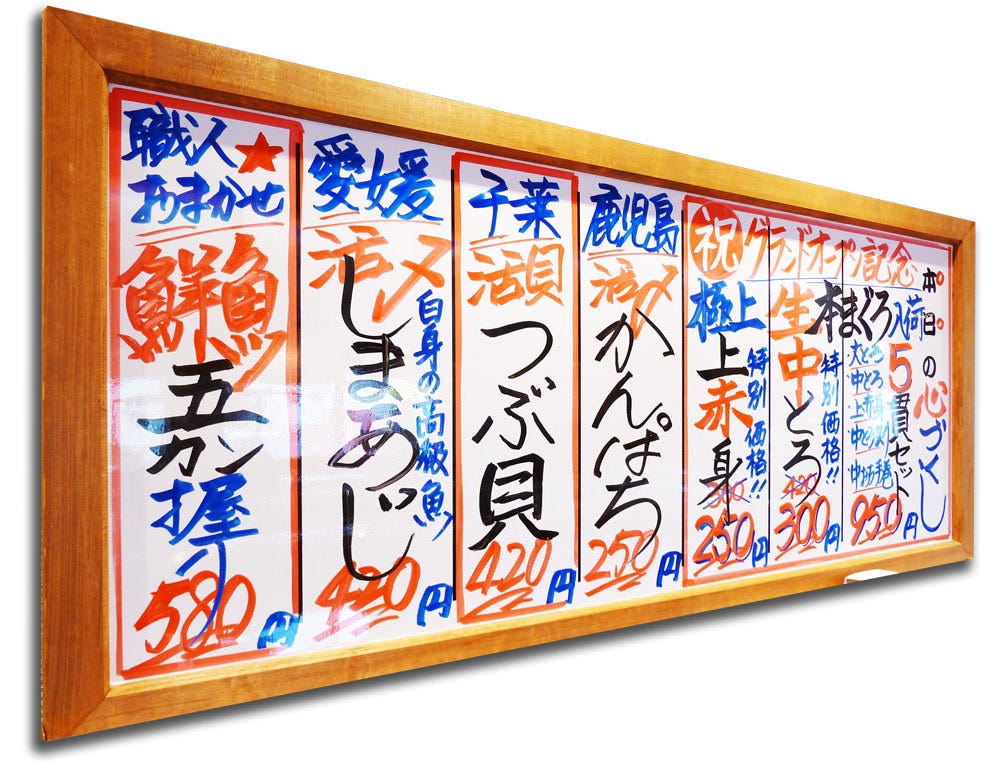 本日の心づくし
祝グランドオープン記念
極上生本まぐろ入荷
5貫セット
大とろ
中とろ
上赤身
950円
中とろ
特別価格!!
420
300円
上赤身
特別価格!!
250円
鹿児島
活〆
かんぱち
250円
千葉
活貝
つぶ貝
420円
愛媛
活〆
しまあじ
白身の高級魚
420円
職人★
おまかせ
鮮魚
五カン
握り
580円